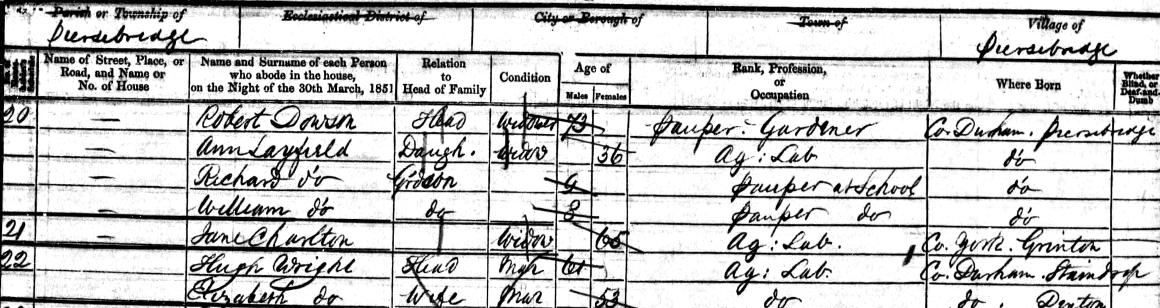 Parish or Township of Ecclesiastical District of City or Borough of Town of Village of
Piersebridge Piersebridge
Name of Street, Place, or Road, and Name or No. of House
Name and Surname of each Person who abode in the house, on the Night of the 30th March, 1851
Relation to Head of Family
Condition
Age of
Males Females
Rank, Profession, or Occupation
Where Born
Whether Blind, or Deaf-and-Dumb
20 — Robert Dowson Head Widower 73 Pauper: Gardener Co. Durham. Piersebridge
— Ann Layfield Daugh. Widow 36 Ag: Lab do
— Richard do Grdson 9 Pauper at School do
— William do do 8 Pauper do do
21 — Jane Charlton Widow 65 Ag: Lab. Co. York. Grinton
22 — Hugh Wright Head Mar 61 Ag: Lab. Co. Durham. Staindrop
Elizabeth do Wife Mar 53 do do. Denton